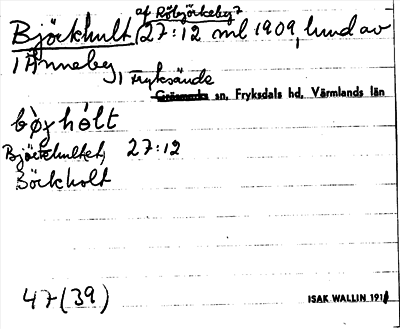 af Röbjörkeby?
Björkhult, 27:12 ml 1909, lund av
i Anneby, i Fryksände
Gräsmarks sn, Fryksdals hd, Värmlands län
bö̀ҳhólt
Björkhultet, 27:12
Böckholt
47 (39)
ISAK WALLIN 191